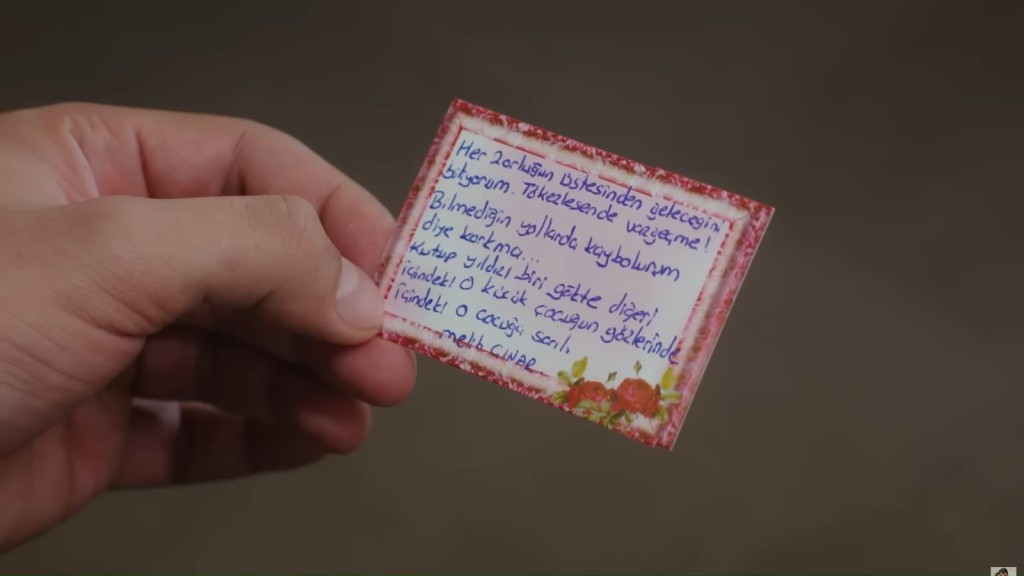 Her zorluğun üstesinden geleceğini
biliyorum. Tökezlesende vazgeçme!
Bilmediğin yollarda kaybolurum
diye korkma...
Kutup yıldızı biri gökte diğeri
içindeki O küçük çocuğun gözlerinde
içindeki O çocuğa sarıl.
Melih ÇINAR